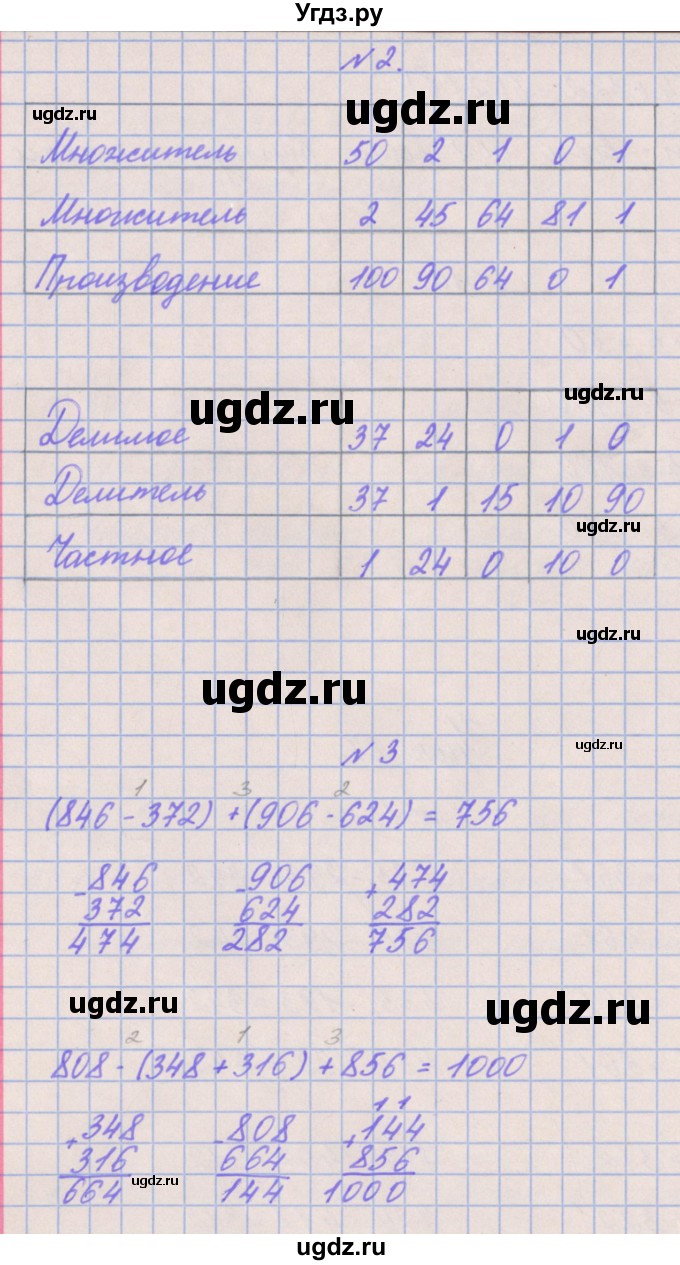 Угдз.ру
N 2.
ugdz.ru ugdz.ru
Множитель 50 2 1 0 1
Множитель 2 45 64 81 1
Произведение 100 90 64 0 1
ugdz.ru ugdz.ru
Делимое 37 24 0 1 0
Делитель 37 1 15 10 90
ugdz.ru
Частное 1 24 0 10 0
ugdz.ru
ugdz.ru
N 3 ugdz.ru
1 3 2
(846 - 372) + (906 - 624) = 756
- 846 - 906 + 474
372 624 282
474 282 756
ugdz.ru ugdz.ru
2 1 3
808 - (348 + 316) + 856 = 1000
1 1
+ 348 - 808 + 144
316 664 856
664 144 1000
ugdz.ru
ugdz.ru